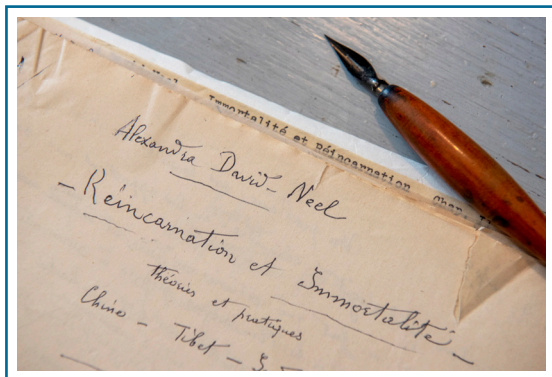 Immortalité et Réincarnation Chap.
Alexandra David-Neel
– Réincarnation et Immortalité –
théories et pratiques
Chine – Tibet –